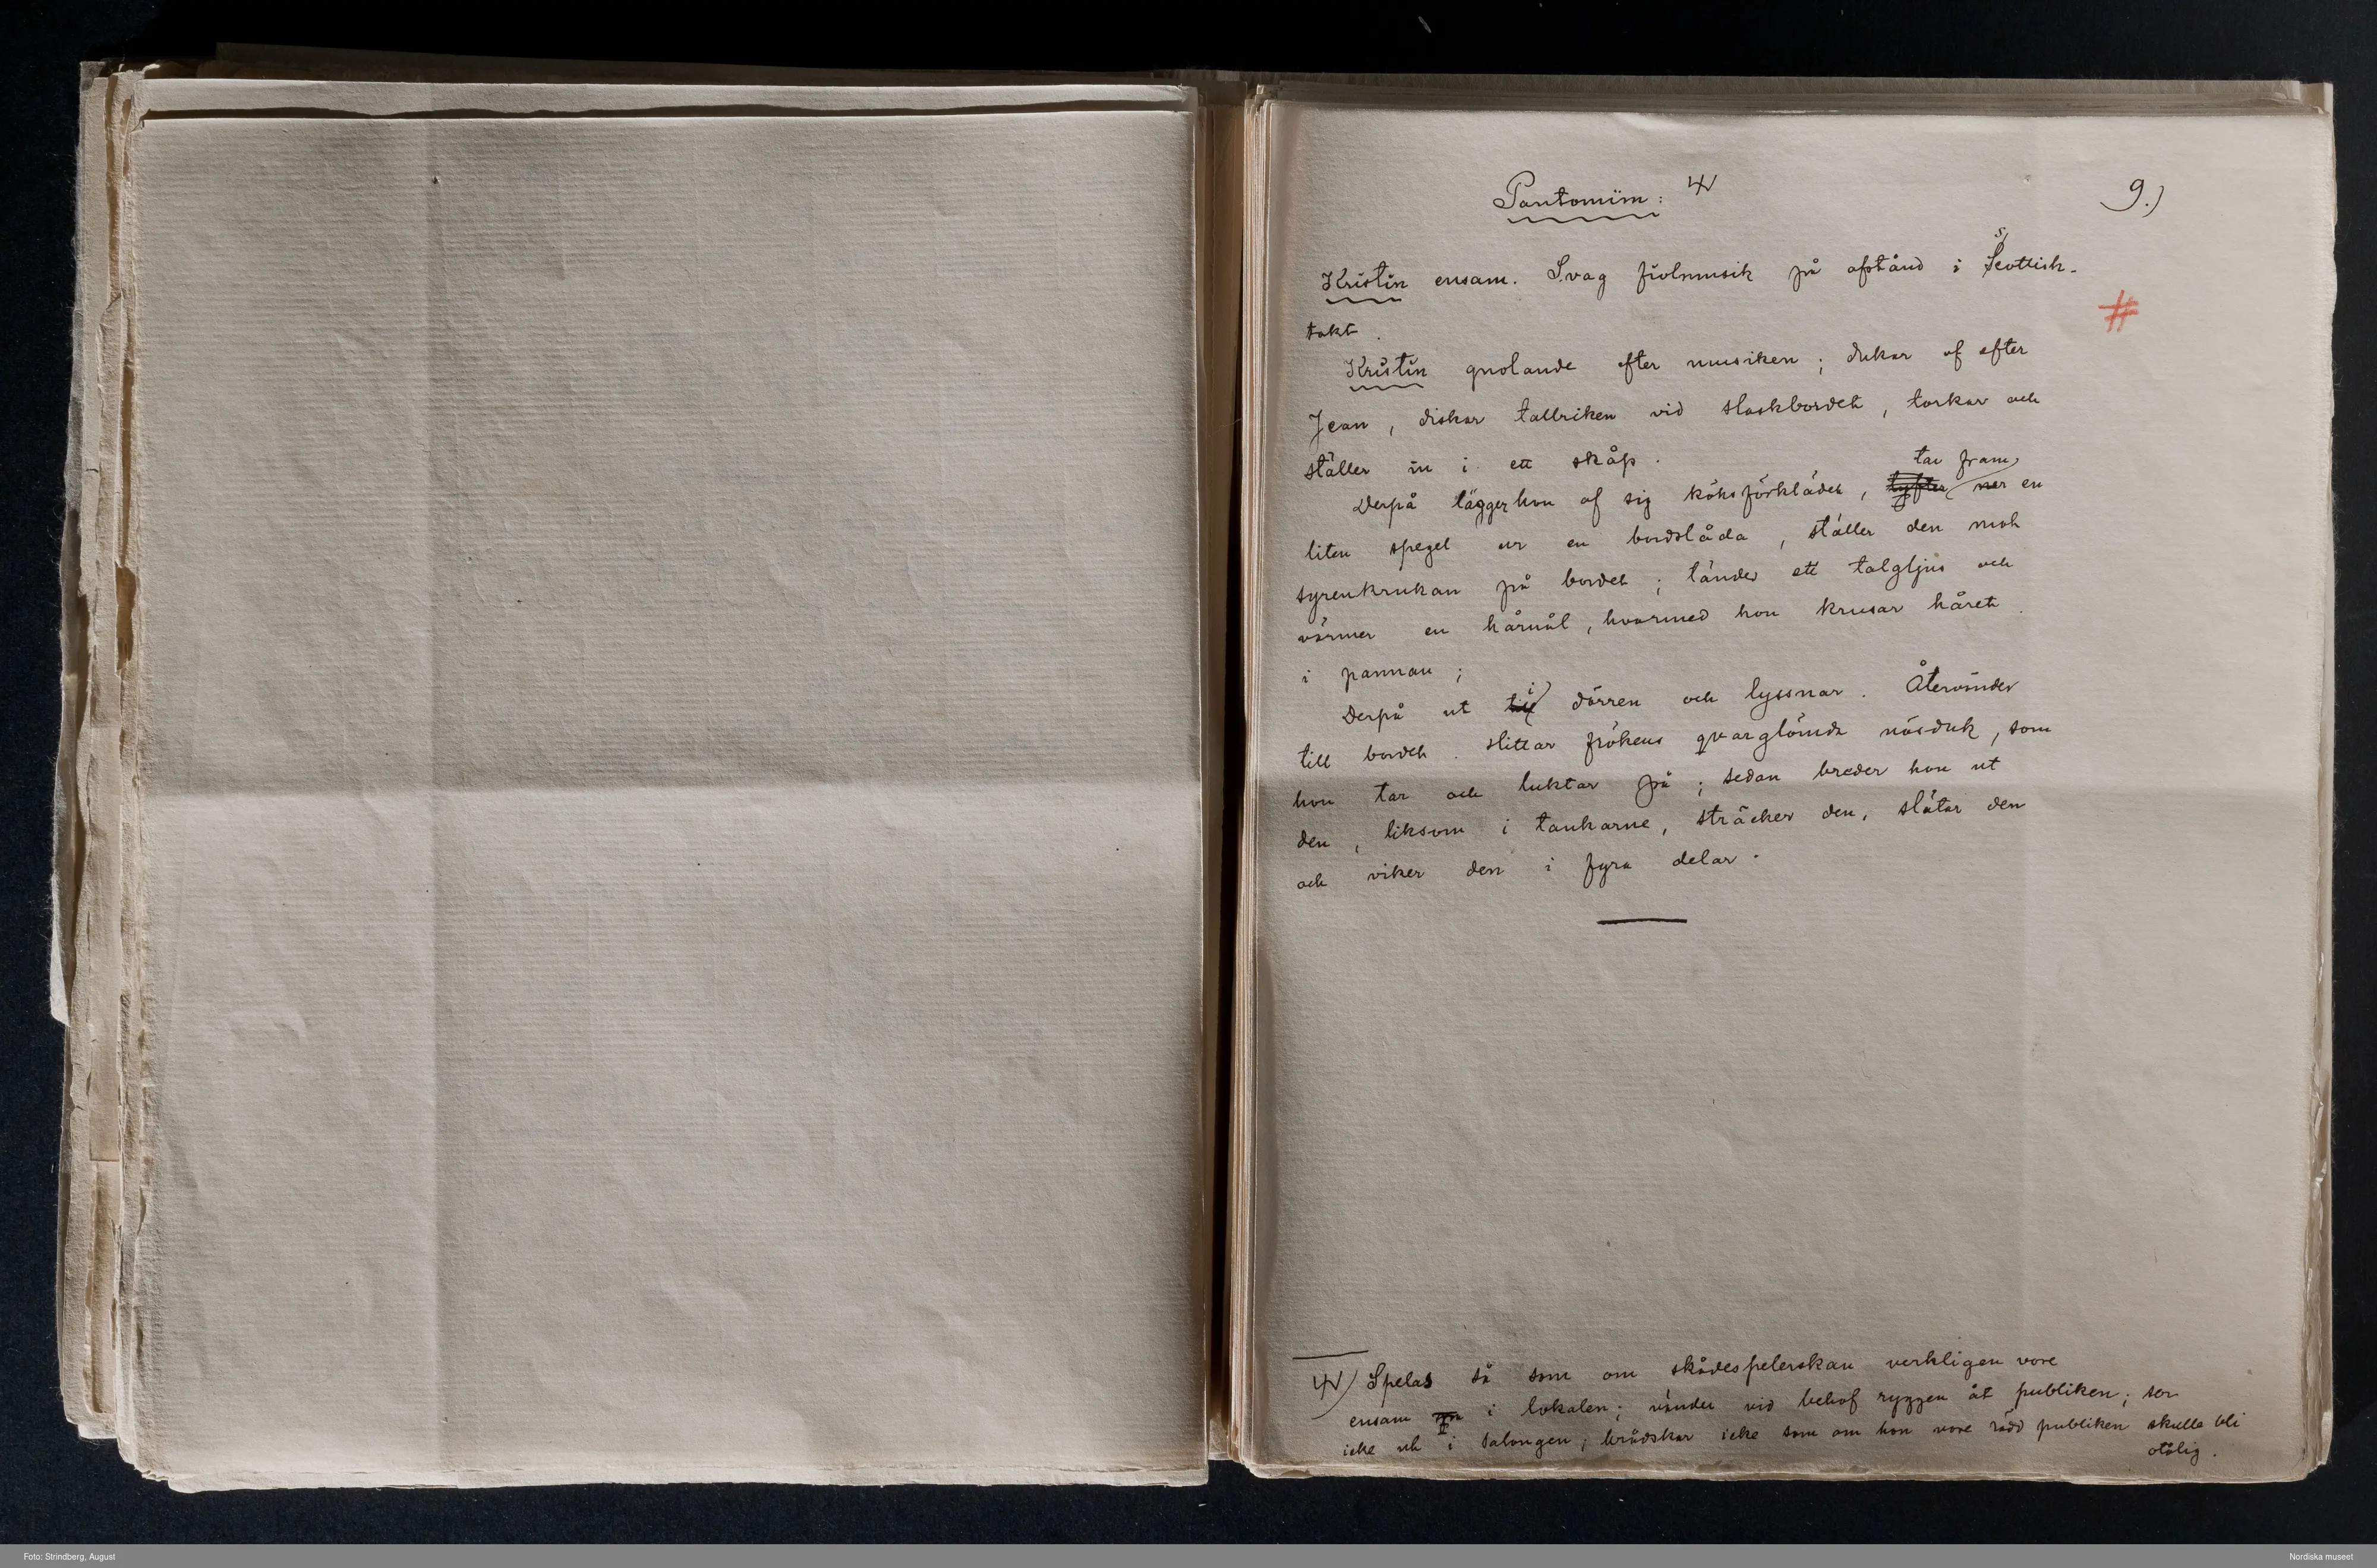 Pantomim:
9.)
Kristin ensam. Svag fiolmusik på afstånd i Scottish-
takt.
Kristin gnolande efter musiken; dukar af efter
Jean, diskar tallriken vid slaskbordet, torkar och
ställer in i ett skåp.
tar fram
Derpå lägger hon af sig köksförklädet, lyfter ner en
liten spegel ur en bordslåda, ställer den mot
syrenkrukan på bordet; tänder ett talgljus och
värmer en hårnål, hvarmed hon krusar håret
i pannan;
i
Derpå ut till dörren och lyssnar. Återvänder
till bordet. Hittar frökens qvarglömda näsduk, som
hon tar och luktar på; sedan breder hon ut
den, liksom i tankarne, sträcker den, slätar den
och viker den i fyra delar.
Spelas så som om skådespelerskan verkligen vore
ensam i lokalen; vänder vid behof ryggen åt publiken; ser
icke ut i salongen; brådskar icke som om hon vore rädd publiken skulle bli
otålig.
Foto: Strindberg, August
Nordiska museet